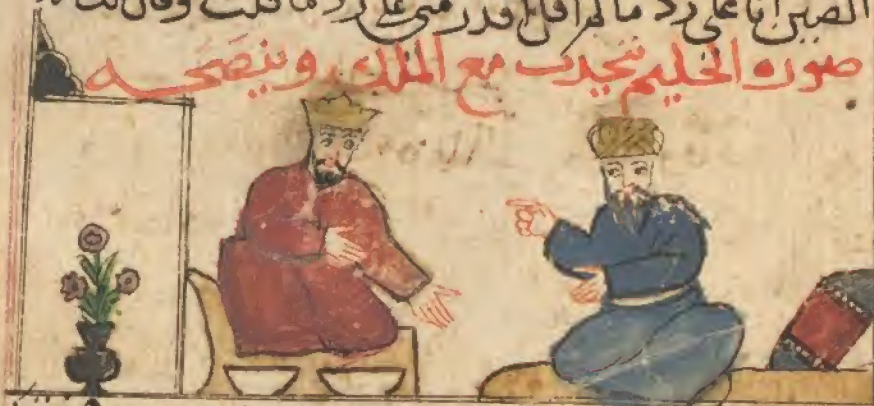 الصين انا على رد ما لم اقل اقدر مني على رد ما قلت وقالت
صورة الحليم يتحدث مع الملك وينصحه